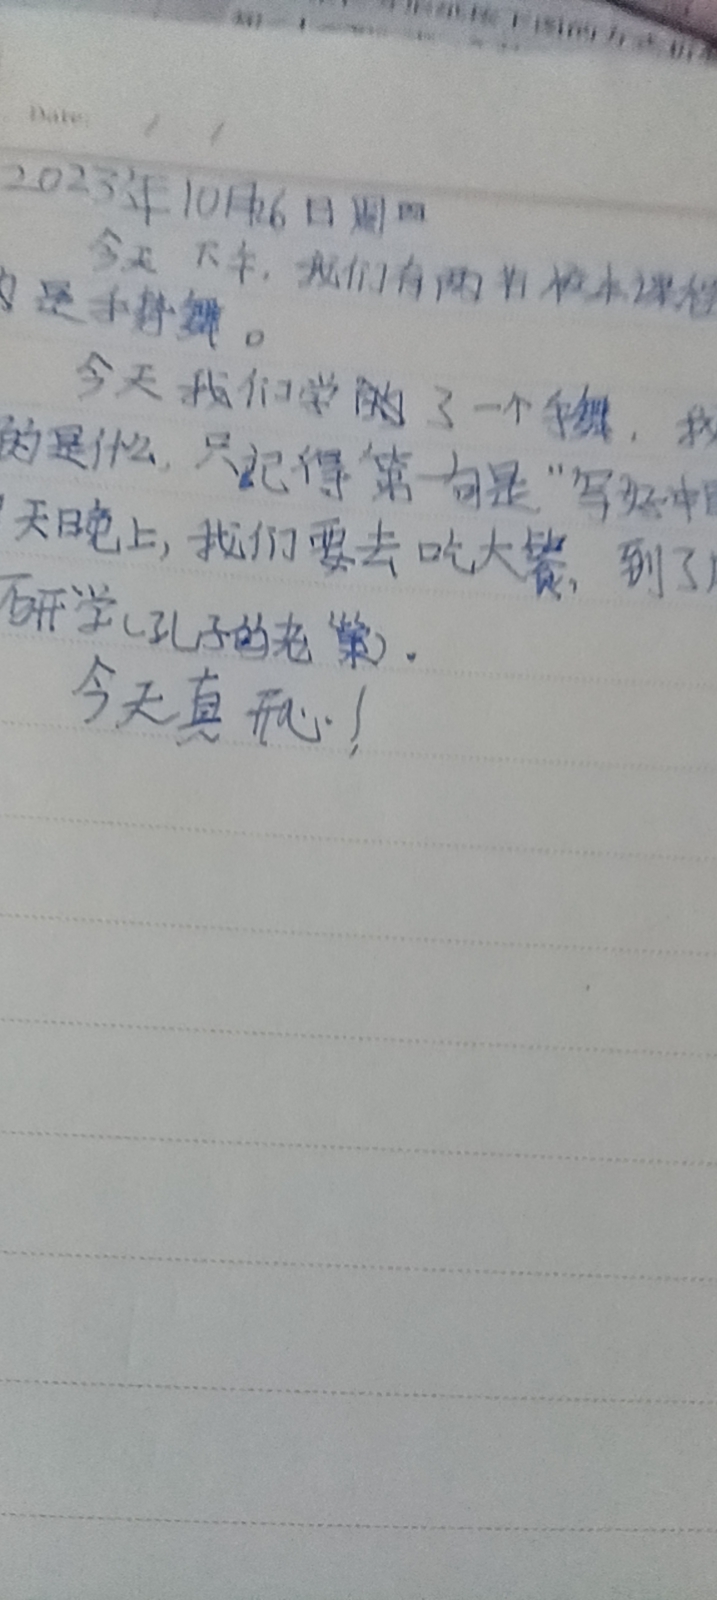 Date: / /
2023年10月26日周四
今天下午，我们有两节校本课程
的是手势舞。
今天我们学的了一个手舞，我
的是什么，只记得第一句是“写好中国
天晚上，我们要去吃大餐，到了
研学（孔子的老
今天真开心！